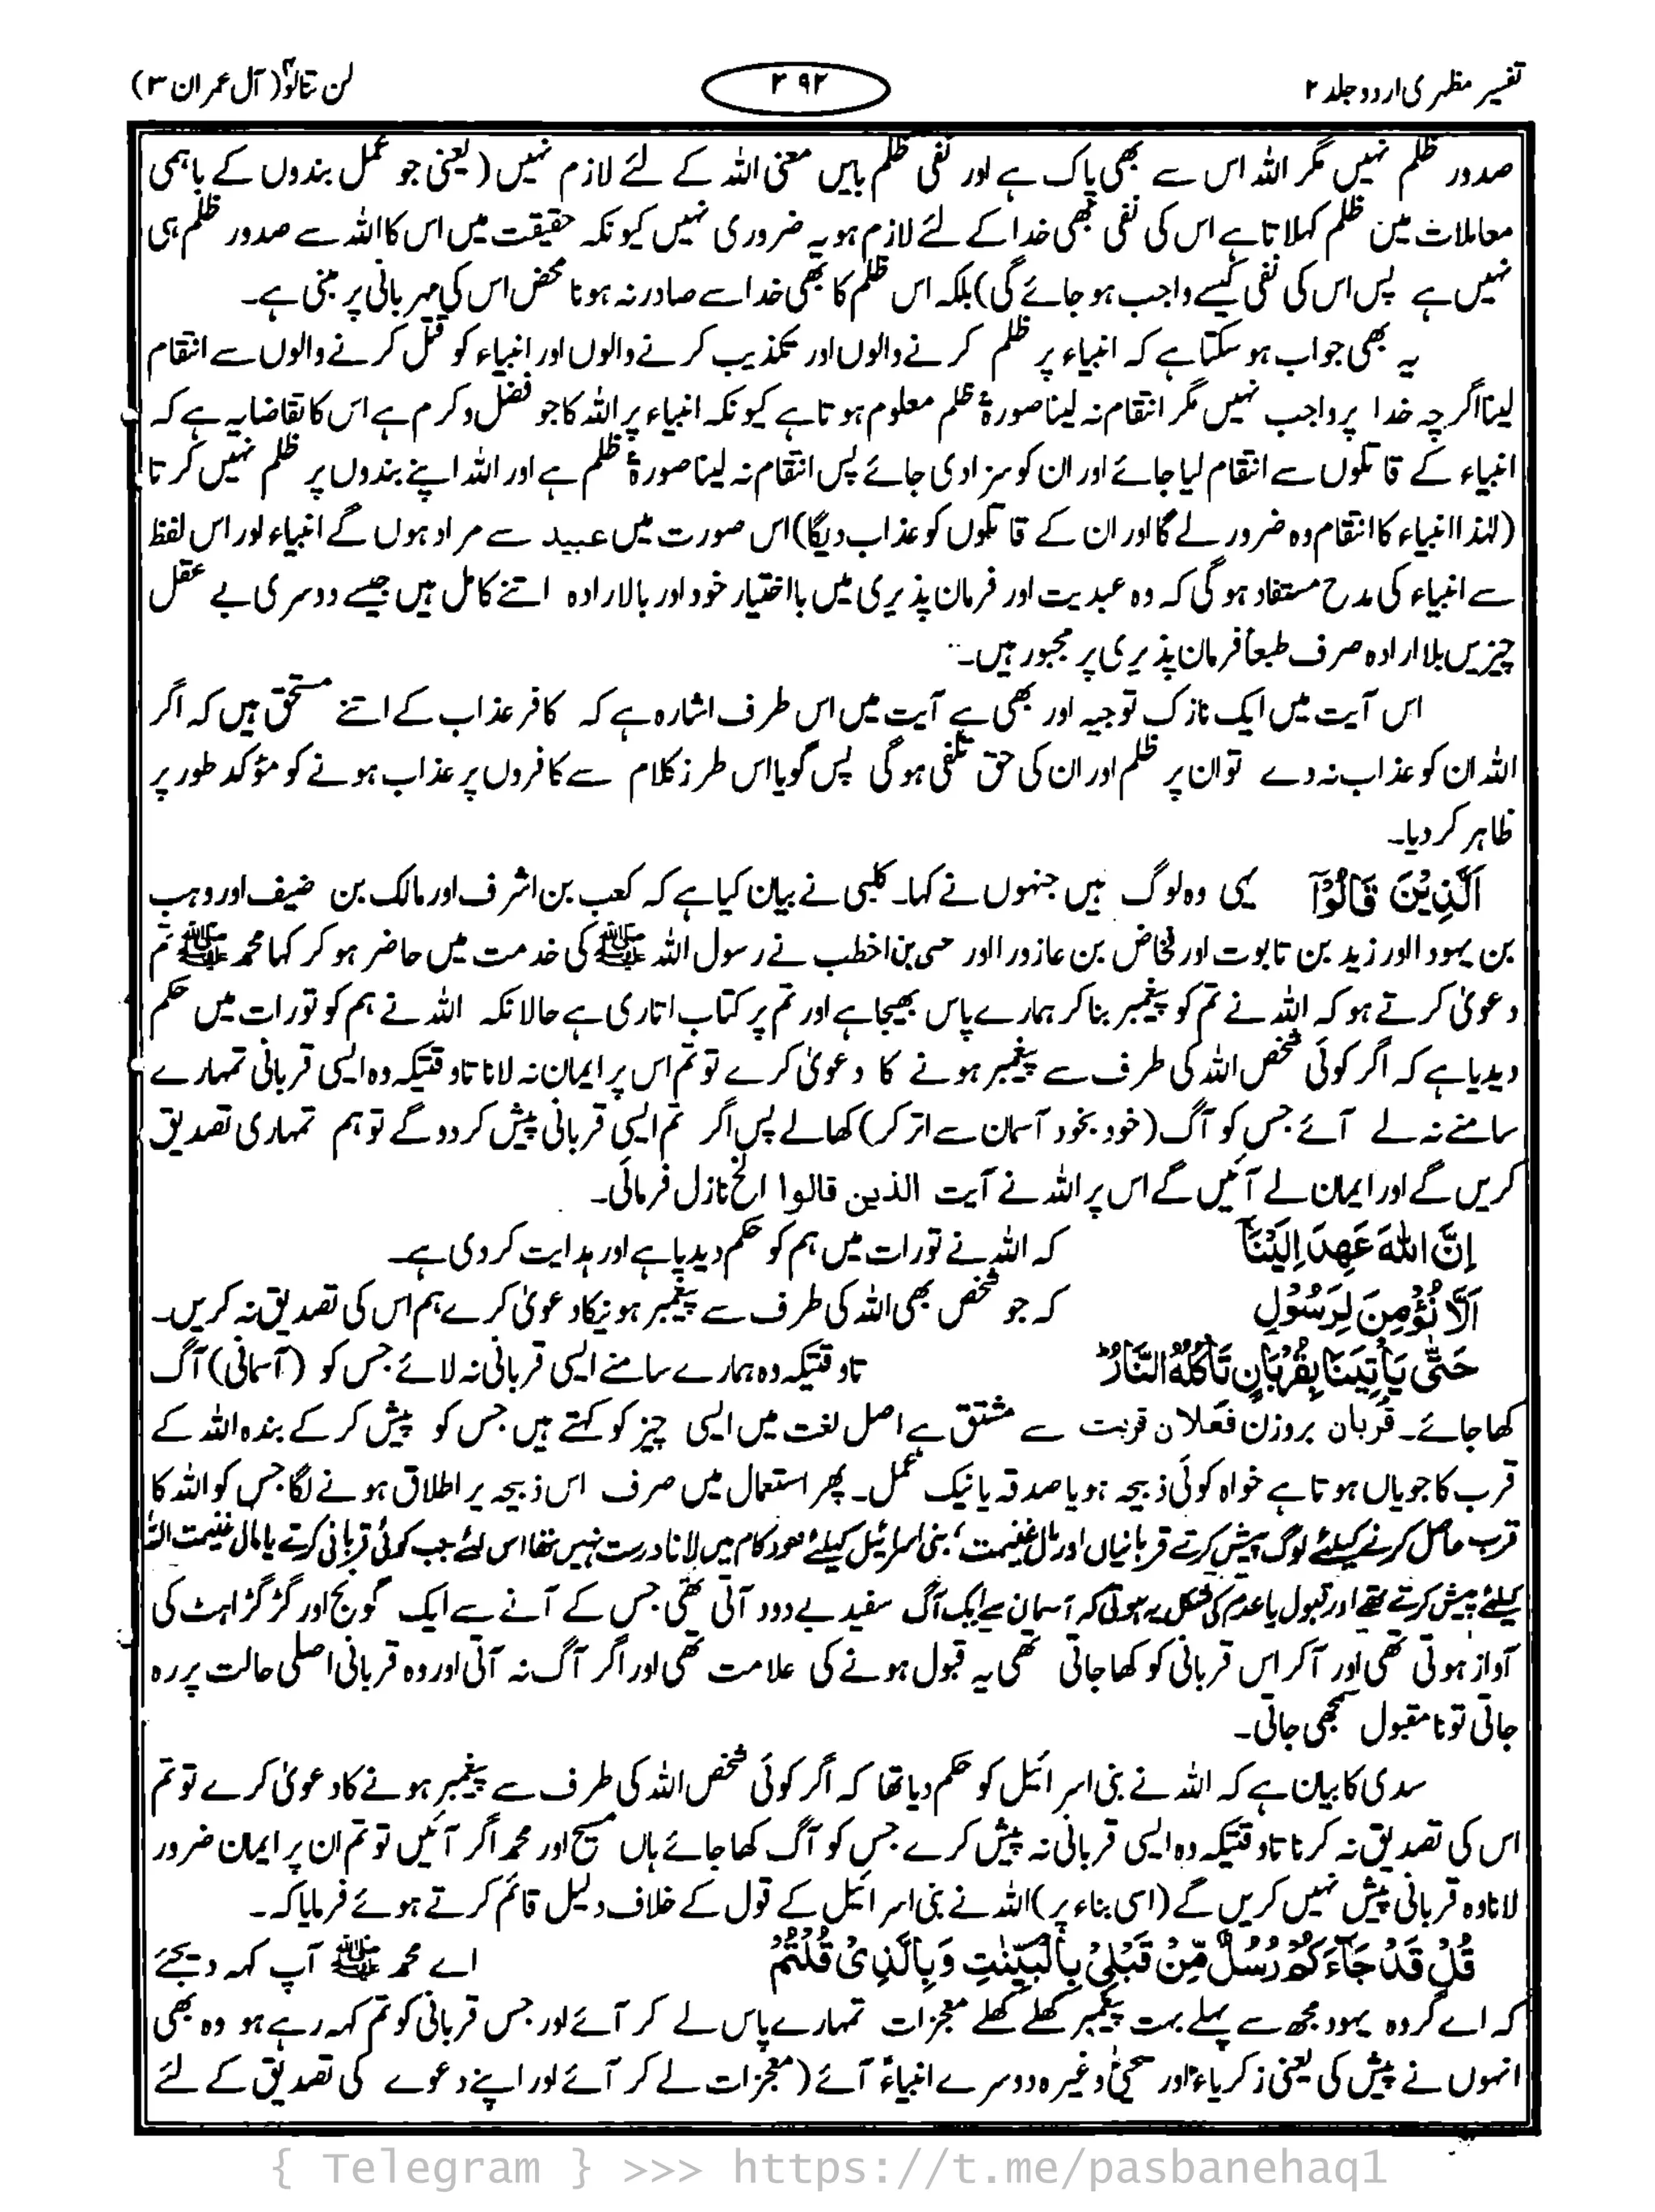 تفسیر مظہری اردو جلد ۲
۳۹۲
لن تنالوا (آل عمران ۳)
صدور ظلم نہیں مگر اللہ اس سے بھی پاک ہے اور نفی ظلم بایں معنی اللہ کے لئے لازم نہیں (یعنی جو عمل بندوں کے باہمی
معاملات میں ظلم کہلاتا ہے اس کی نفی بھی خدا کے لئے لازم ہو یہ ضروری نہیں کیونکہ حقیقت میں اس کا اللہ سے صدور ظلم ہی
نہیں ہے پس اس کی نفی کیسے واجب ہو جائے گی) بلکہ اس ظلم کا بھی خدا سے صادر نہ ہونا محض اس کی مہربانی پر مبنی ہے۔
یہ بھی جواب ہو سکتا ہے کہ انبیاء پر ظلم کرنے والوں اور تکذیب کرنے والوں اور انبیاء کو قتل کرنے والوں سے انتقام
لینا اگرچہ خدا پر واجب نہیں مگر انتقام نہ لینا صورۃً ظلم معلوم ہوتا ہے کیونکہ انبیاء پر اللہ کا جو فضل و کرم ہے اس کا تقاضا یہ ہے کہ
انبیاء کے قاتلوں سے انتقام لیا جائے اور ان کو سزا دی جائے پس انتقام نہ لینا صورۃً ظلم ہے اور اللہ اپنے بندوں پر ظلم نہیں کرتا
(لہٰذا انبیاء کا انتقام وہ ضرور لے گا اور ان کے قاتلوں کو عذاب دیگا) اس صورت میں عبید سے مراد ہوں گے انبیاء اور اس لفظ
سے انبیاء کی مدح مستفاد ہو گی کہ وہ عبدیت اور فرمان پذیری میں بااختیار خود اور بالارادہ اتنے کامل ہیں جیسے دوسری بے عقل
چیزیں بلا ارادہ صرف طبعاً فرمان پذیری پر مجبور ہیں۔
اس آیت میں ایک نازک توجیہ اور بھی ہے آیت میں اس طرف اشارہ ہے کہ کافر عذاب کے اتنے مستحق ہیں کہ اگر
اللہ ان کو عذاب نہ دے تو ان پر ظلم اور ان کی حق تلفی ہو گی پس گویا اس طرز کلام سے کافروں پر عذاب ہونے کو مؤکد طور پر
ظاہر کر دیا۔
اَلَّذِيْنَ قَالُوْٓا یہی وہ لوگ ہیں جنہوں نے کہا۔ کلبی نے بیان کیا ہے کہ کعب بن اشرف اور مالک بن ضیف اور وہب
بن یہود اور زید بن تابوت اور فخاض بن عازورا اور حسی بن اخطب نے رسول اللہ ﷺ کی خدمت میں حاضر ہو کر کہا محمد ﷺ تم
دعویٰ کرتے ہو کہ اللہ نے تم کو پیغمبر بنا کر ہمارے پاس بھیجا ہے اور تم پر کتاب اتاری ہے حالانکہ اللہ نے ہم کو تورات میں حکم
دیدیا ہے کہ اگر کوئی شخص اللہ کی طرف سے پیغمبر ہونے کا دعویٰ کرے تو تم اس پر ایمان نہ لانا تاوقتیکہ وہ ایسی قربانی تمہارے
سامنے نہ لے آئے جس کو آگ (خود بخود آسمان سے اتر کر) کھالے پس اگر تم ایسی قربانی پیش کر دو گے تو ہم تمہاری تصدیق
کریں گے اور ایمان لے آئیں گے اس پر اللہ نے آیت الذین قالوا الخ نازل فرمائی۔
اِنَّ اللّٰهَ عَهِدَ اِلَيْنَآ کہ اللہ نے تورات میں ہم کو حکم دیدیا ہے اور ہدایت کر دی ہے۔
اَلَّا نُؤْمِنَ لِرَسُوْلٍ کہ جو شخص بھی اللہ کی طرف سے پیغمبر ہونیکا دعویٰ کرے ہم اس کی تصدیق نہ کریں۔
حَتّٰى يَاْتِيَنَا بِقُرْبَانٍ تَاْكُلُهُ النَّارُ تاوقتیکہ وہ ہمارے سامنے ایسی قربانی نہ لائے جس کو (آسمانی) آگ
کھا جائے۔ قربان بروزن فعلان قربت سے مشتق ہے اصل لغت میں ایسی چیز کو کہتے ہیں جس کو پیش کر کے بندہ اللہ کے
قرب کا جویاں ہوتا ہے خواہ کوئی ذبیحہ ہو یا صدقہ یا نیک عمل۔ پھر استعمال میں صرف اس ذبیحہ پر اطلاق ہونے لگا جس کو اللہ کا
قرب حاصل کرنے کیلئے لوگ پیش کرتے قربانیاں اور مال غنیمت، بنی اسرائیل کیلئے خود کام میں لانا درست نہیں تھا اس لئے جب کوئی قربانی کرتے یا مال غنیمت اللہ
کیلئے پیش کرتے تھے اور قبول یا عدم کی شکل یہ ہوتی کہ آسمان سے ایک آگ سفید بے دود آتی تھی جس کے آنے سے ایک گونج اور گڑگڑاہٹ کی
آواز ہوتی تھی اور آکر اس قربانی کو کھا جاتی تھی یہ قبول ہونے کی علامت تھی اور اگر آگ نہ آتی اور وہ قربانی اصلی حالت پر رہ
جاتی تو نا مقبول سمجھی جاتی۔
سدی کا بیان ہے کہ اللہ نے بنی اسرائیل کو حکم دیا تھا کہ اگر کوئی شخص اللہ کی طرف سے پیغمبر ہونے کا دعویٰ کرے تو تم
اس کی تصدیق نہ کرنا تاوقتیکہ وہ ایسی قربانی نہ پیش کرے جس کو آگ کھا جائے ہاں مسیح اور محمد اگر آئیں تو تم ان پر ایمان ضرور
لانا وہ قربانی پیش نہیں کریں گے (اسی بناء پر) اللہ نے بنی اسرائیل کے قول کے خلاف دلیل قائم کرتے ہوئے فرمایا کہ۔
قُلْ قَدْ جَآءَكُمْ رُسُلٌ مِّنْ قَبْلِيْ بِالْبَيِّنٰتِ وَبِالَّذِيْ قُلْتُمْ اے محمد ﷺ آپ کہہ دیجئے
کہ اے گروہ یہود مجھ سے پہلے بہت پیغمبر کھلے کھلے معجزات تمہارے پاس لے کر آئے اور جس قربانی کو تم کہہ رہے ہو وہ بھی
انہوں نے پیش کی یعنی زکریاءؑ اور یحییٰؑ وغیرہ دوسرے انبیاءؑ آئے (معجزات لے کر آئے اور اپنے دعوے کی تصدیق کے لئے
{ Telegram } >>> https://t.me/pasbanehaq1